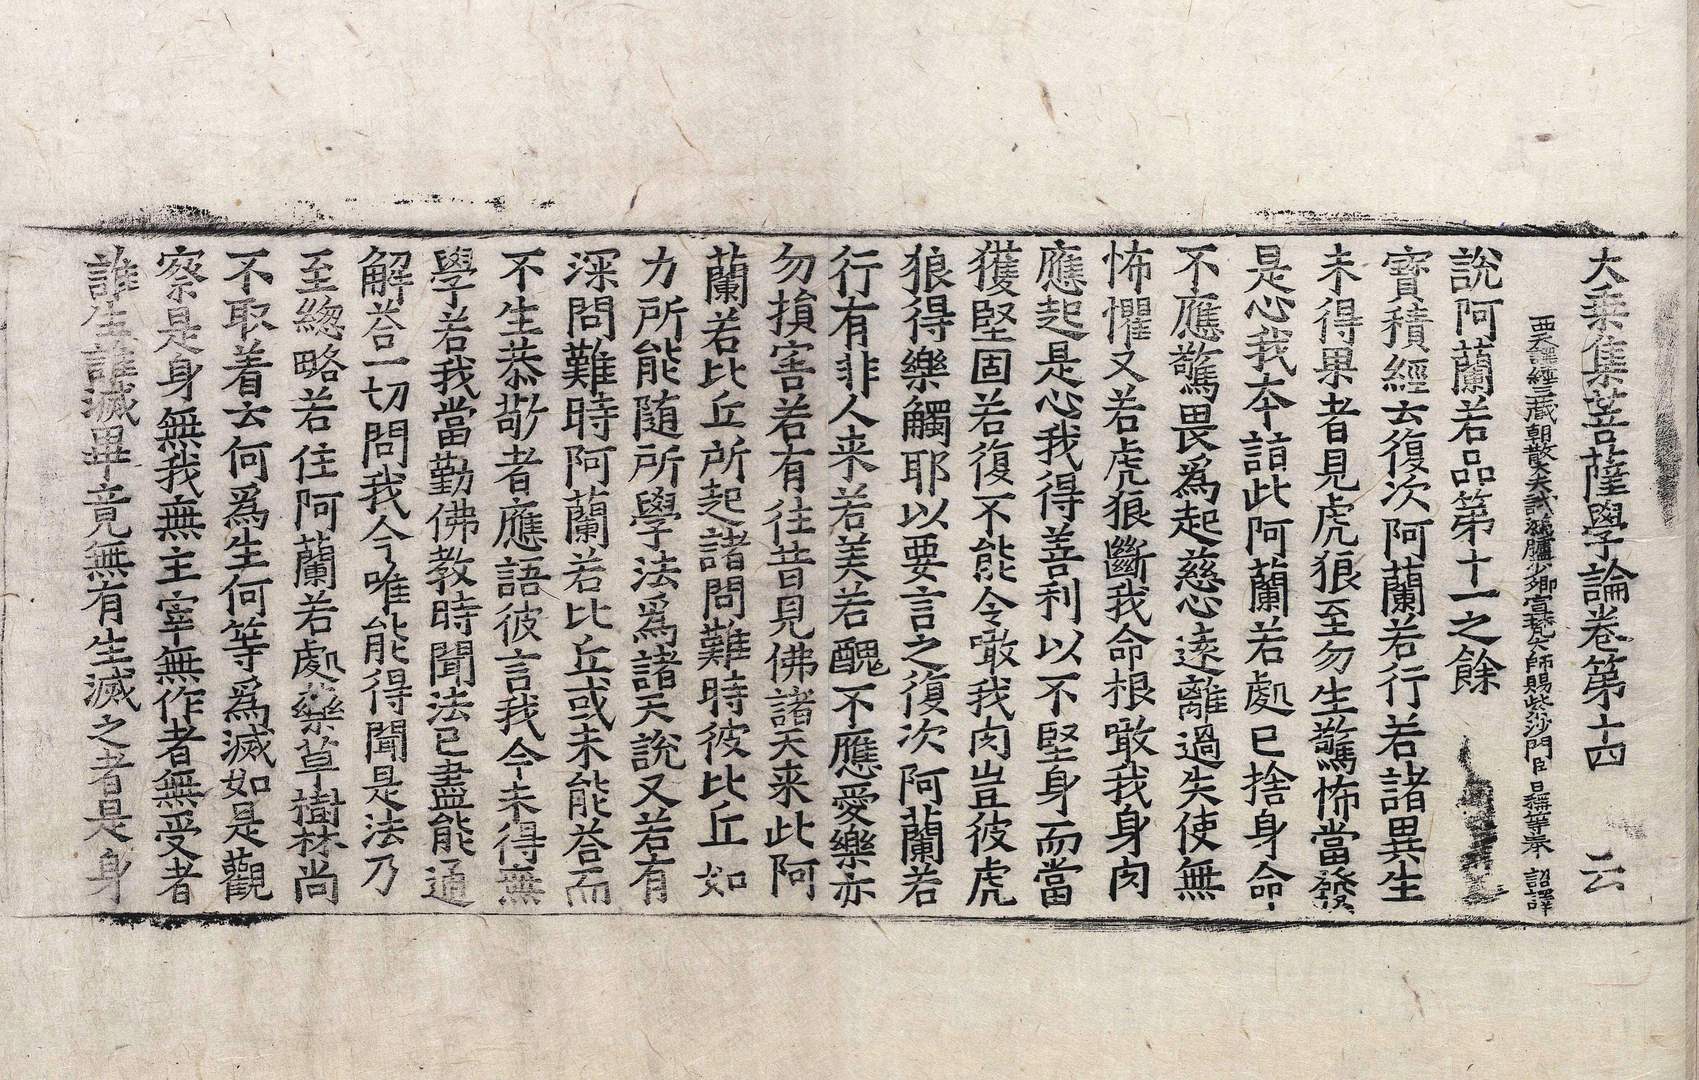 大乗集菩薩學論卷第十四　云
西天譯經三藏朝散大夫試鴻臚少卿宣梵大師賜紫沙門臣日稱等奉　詔譯
說阿蘭若品第十一之餘
寶積經云復次阿蘭若行若諸異生
未得果者見虎狼至勿生驚怖當發
是心我夲詣此阿蘭若處已捨身命
不應驚畏爲起慈心遠離過失使無
怖懼又若虎狼斷我命根噉我身肉
應起是心我得善利以不堅身而當
獲堅固若復不能令噉我肉豈彼虎
狼得樂觸耶以要言之復次阿蘭若
行有非人来若美若醜不應愛樂亦
勿損害若有往昔見佛諸天来此阿
蘭若比丘所起諸問難時彼比丘如
力所能随所學法爲諸天說又若有
深問難時阿蘭若比丘或未能荅而
不生恭敬者應語彼言我今未得無
學若我當勤佛教時聞法已盡能通
解荅一切問我今唯能得聞是法乃
至緫略若住阿蘭若處藥草樹林尚
不取着云何爲生何等爲滅如是觀
察是身無我無主宰無作者無受者
誰生誰滅畢竟無有生滅之者是身